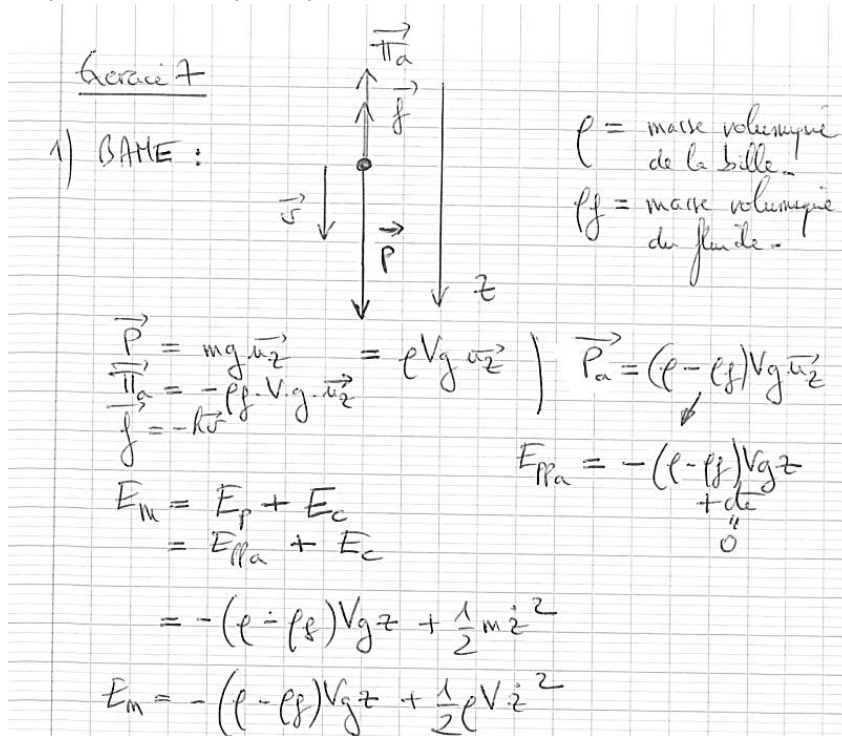 Exercice 7
1) BAME :
\vec{Π_a}
\vec{f}
\vec{v}
\vec{P}
z
ρ = masse volumique
de la bille.
ρ_f = masse volumique
du fluide.
\vec{P} = mg \vec{u_z} = ρVg \vec{u_z}
\vec{Π_a} = -ρ_f.V.g.\vec{u_z}
\vec{f} = -k\vec{v}
\vec{P_a} = (ρ - ρ_f)Vg \vec{u_z}
E_{ppa} = -(ρ-ρ_f)Vgz
+ cte
"
0
E_m = E_p + E_c
= E_{ppa} + E_c
= -(ρ - ρ_f)Vgz + 1/2 mż²
E_m = -(ρ - ρ_f)Vgz + 1/2 ρVż²